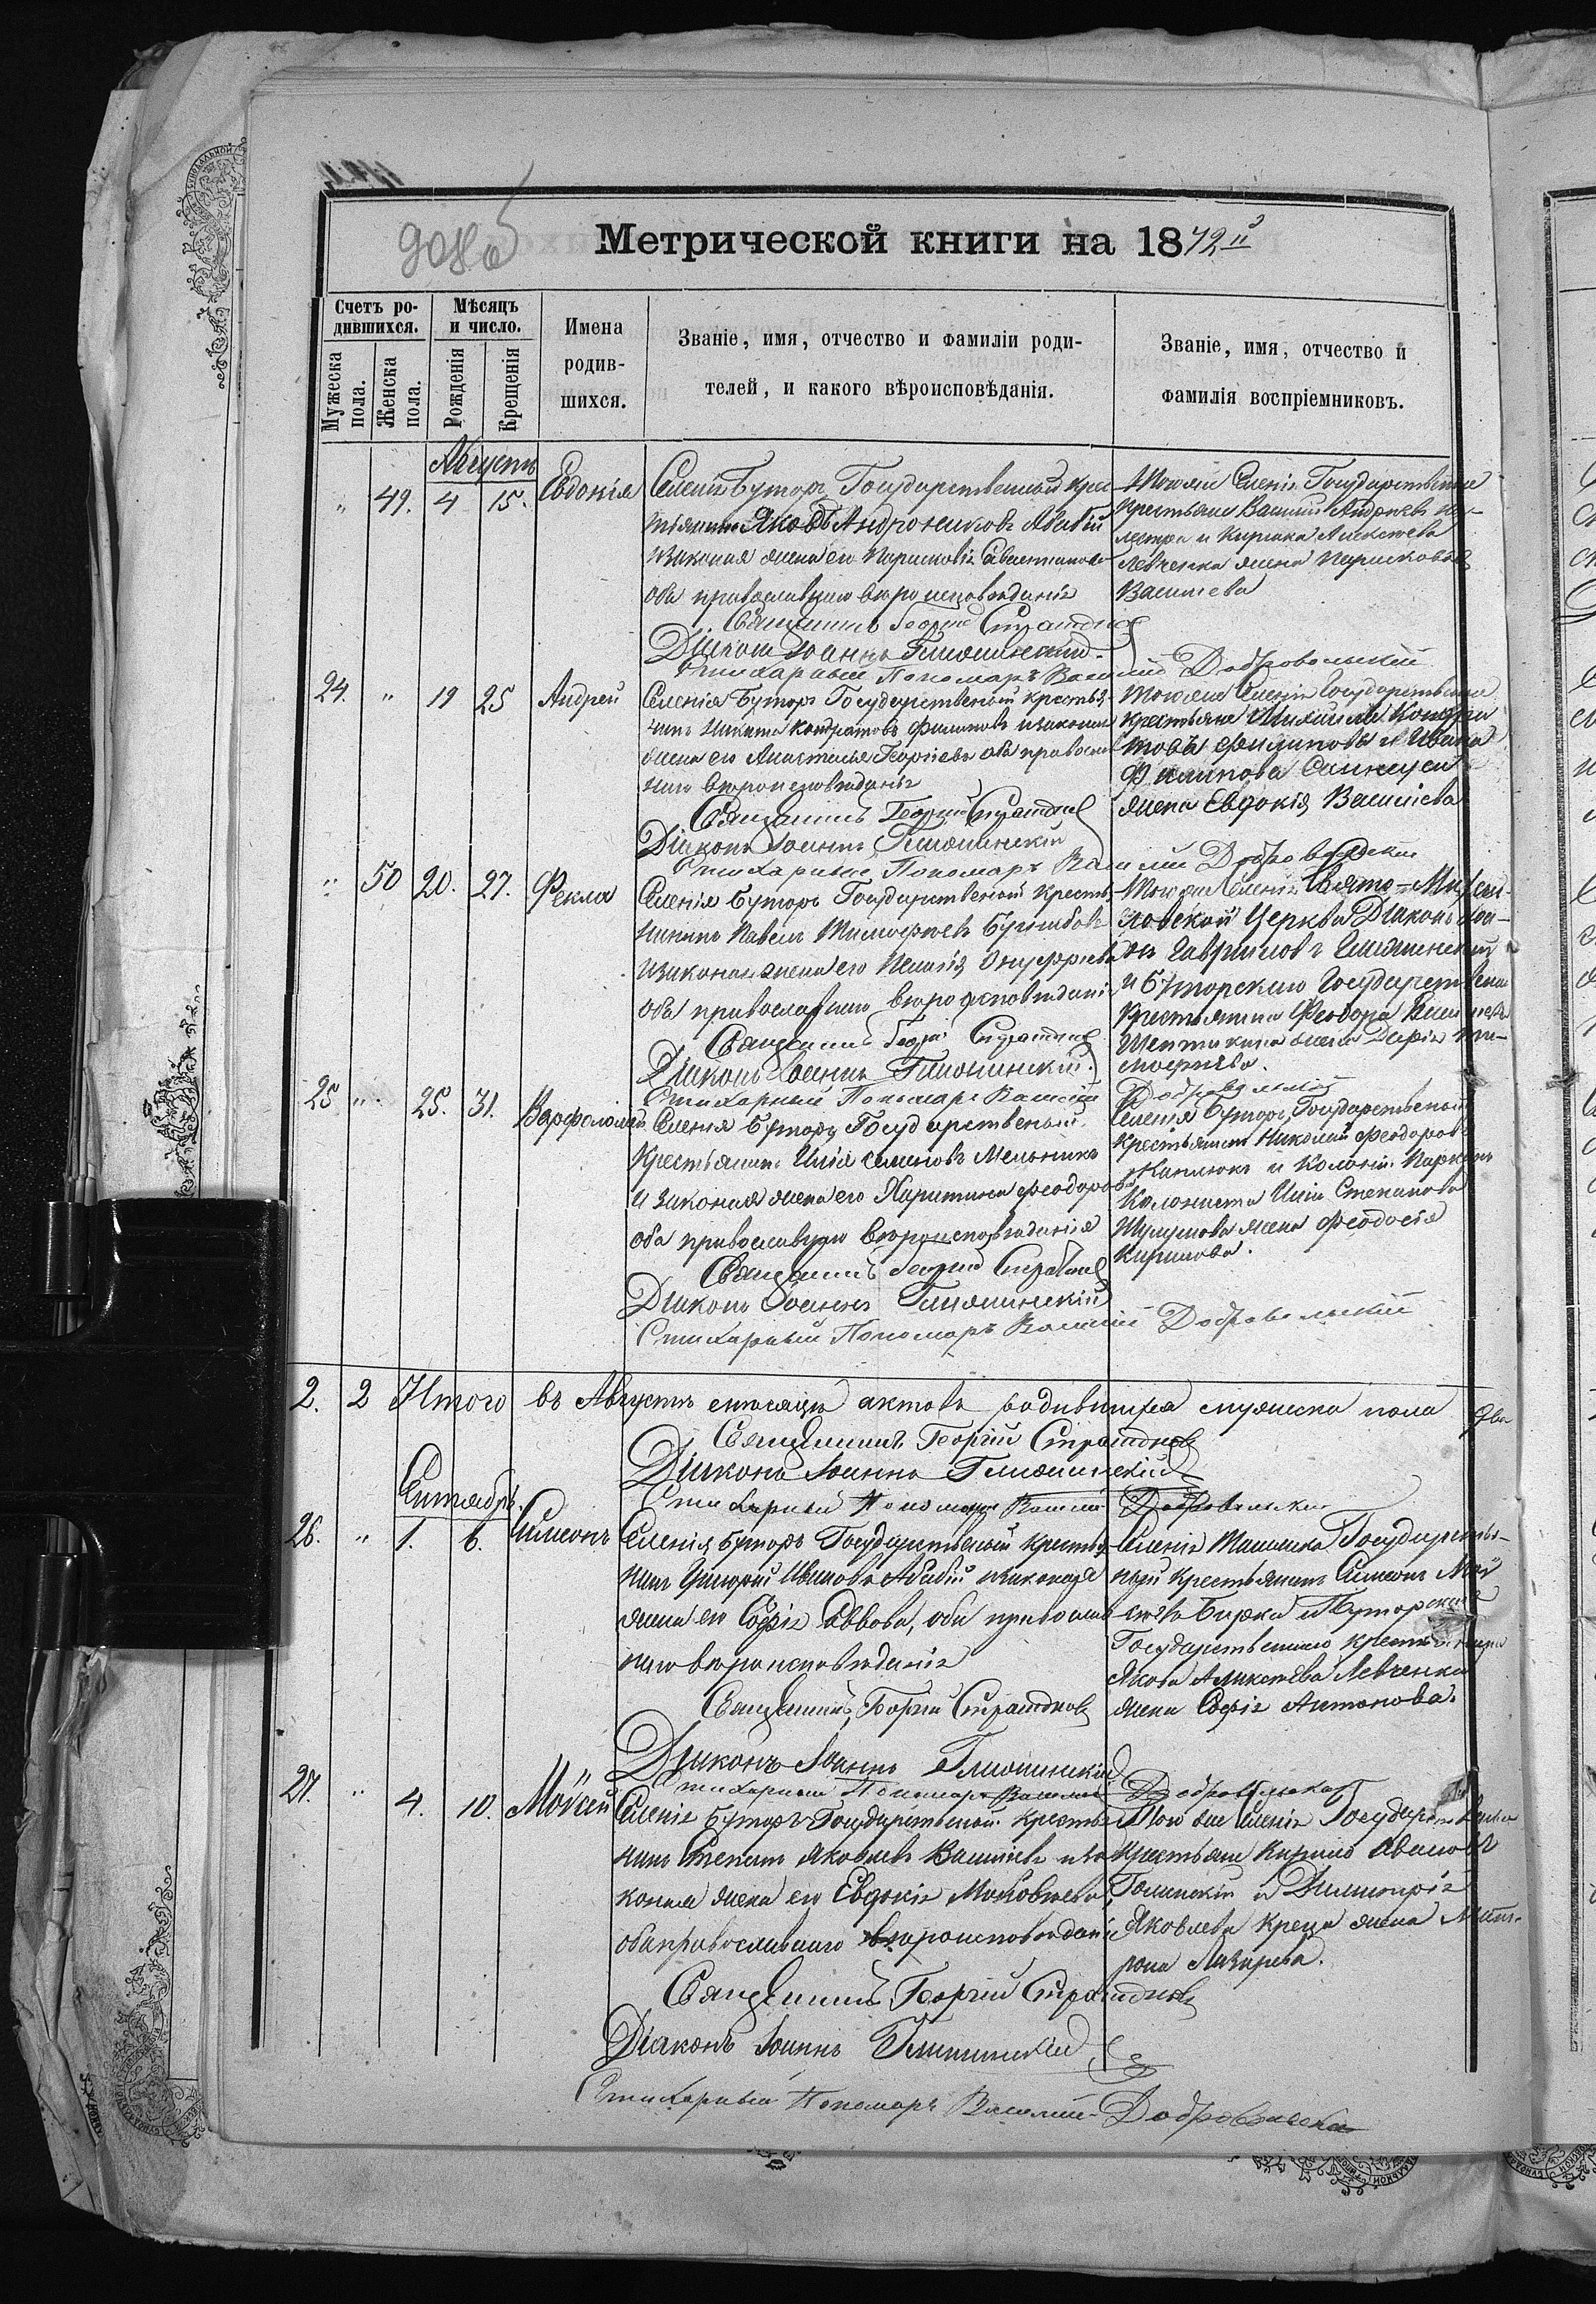 Метрической книги на 1872й
Счетъ ро-
дившихся.
Мѣсяцъ
и число.
Мужеска
пола.
Женска
пола.
Рожденія
Крещенія
Имена
родив-
шихся.
Званіе, имя, отчество и фамиліи роди-
телей, и какого вѣроисповѣданія.
Званіе, имя, отчество и
фамилія воспріемниковъ.
Августъ
" 49. 4 15. Евдокія
Селенія Буторъ Государственный крес-
тьянинъ Яковъ Андрониковъ Абабій
изаконая жена его Парасковія
оба православнаго вѣроисповѣданія
Священникъ Георгій
Діаконъ Іоаннъ Гпюшинскій
Стихарный Пономарь Василій Добровольскій
Тогоже Селенія Государственные
крестьяне Василій
и Кирила Алексѣева
Левченка жена Парасковья
Василева
24. " 19 25 Андрей
Селенія Буторъ Государственый крестья-
нинъ Никита Кондратовъ Филиповъ изаконая
жена его Анастасья Георгіева оба православ-
наго вѣроисповѣданія
Священникъ Георгій
Діаконъ Іоаннъ
Стихарный Пономарь Василій Добровольскій
Тогоже Селенія Государственые
крестьяне Михаилъ Кондра
товъ Филиповъ и Ивана
Филипова
жена Евдокія Василіева
" 50 20. 27. Фекла
Селенія Буторъ Государственый крестья-
нинъ Павелъ Тимофѣевъ
изаконая жена его Пелагія Онуфріева
оба православнаго вѣроисповѣданія
Священникъ Георгій
Діаконъ Іоаннъ
Стихарный Пономарь Василій Добровольскій
Тогоже Селенія Свято=Михаи-
ловской Церкви Діаконъ Іоа-
нъ Гавриловъ
и Буторскаго Государственаго
крестьянина Феодора
жена Дарія Ти-
мофѣева.
25 " 25. 31. Варфоломей
Селенія Буторъ Государственый
крестьянинъ Илія Семеновъ Мельникъ
и законая жена его Харитина Феодорова
оба православнаго вѣроисповѣданія
Священникъ Георгій
Діаконъ Іоаннъ
Стихарный Пономарь Василій Добровольскій
Селенія Буторъ Государственый
крестьянинъ Николай Феодоровъ
и Колоніи Парканъ
Колониста Иліи Степанова
жена Феодосія
Кирилова.
2. 2 Итого въ Августѣ мѣсяцѣ актовъ родившихся мужеска пола два
Священникъ Георгій
Діаконъ Іоаннъ
Стихарный Пономарь Василій Добровольскій
Сентябрь.
26. " 1. 6. Симеонъ
Селенія Буторъ Государственый крестья-
нинъ Григорій Ивановъ Абабій изаконая
жена его Софія Саввова, оба православ-
наго вѣроисповѣданія
Священникъ Георгій
Діаконъ Іоаннъ
Стихарный Пономарь Василій Добровольскій
Селенія Ташлыка Государствен-
ный крестьянинъ Симеонъ Мой
сеевъ и Буторскаго
Государственаго крестьянина
Якова Алексѣева Левченка
жена Софія Антонова.
27. " 4. 10. Мойсей
Селенія Буторъ Государственый крестья-
нинъ Степанъ Яковлевъ Василіевъ иза-
коная жена его Евдокія
оба православнаго вѣроисповѣданія
Священникъ Георгій
Діаконъ Іоаннъ
Стихарный Пономарь Василій Добровольскій
Тогоже Селенія Государственые
крестьяне Кирило Ивановъ
и Димитрія
Яковлева жена Мат-
рона Лазарева.